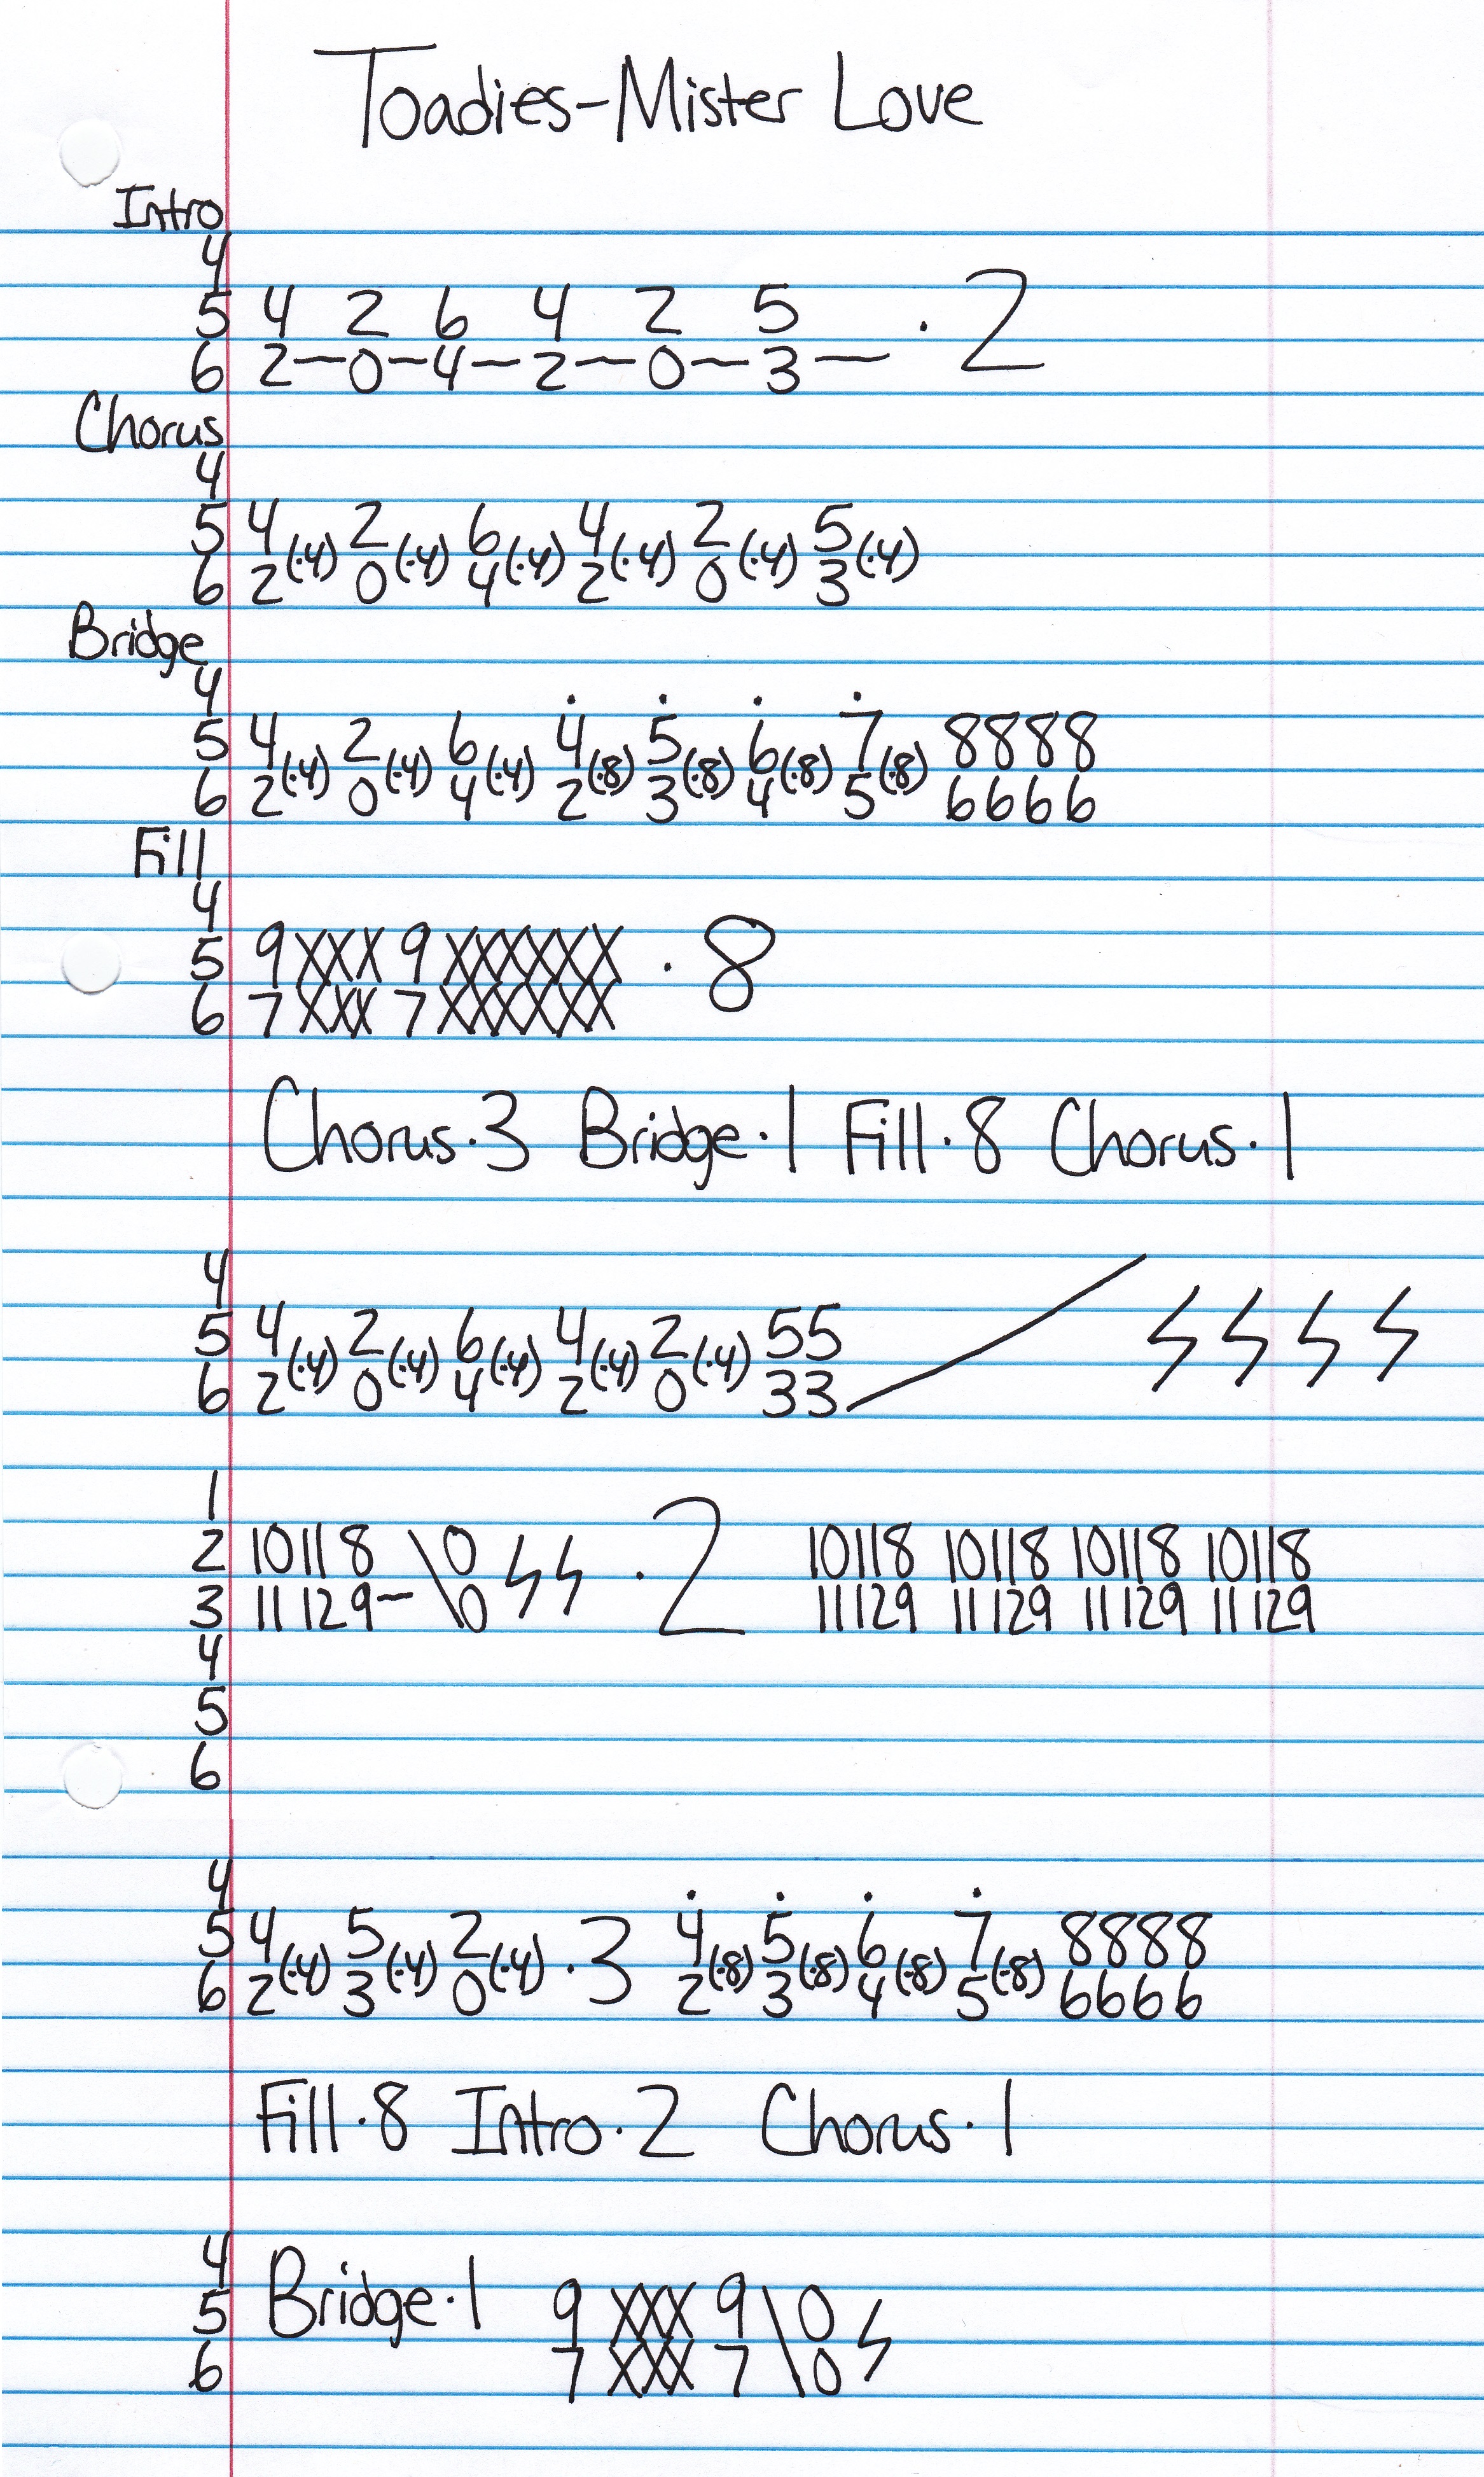 Toadies-Mister Love
Intro
4
5 4 2 6 4 2 5 · 2
6 2-0-4-2-0-3-
Chorus
4
5 4(·4) 2(·4) 6(·4) 4(·4) 2(·4) 5(·4)
6 2 0 4 2 0 3
Bridge
4
5 4(·4) 2(·4) 6(·4) 4(·8) 5(·8) 6(·8) 7(·8) 8888
6 2 0 4 2 3 4 5 6666
Fill
4
5 9XXX9XXXXXX · 8
6 7XXX7XXXXXX
Chorus·3 Bridge·1 Fill·8 Chorus·1
4
5 4(·4) 2(·4) 6(·4) 4(·4) 2(·4) 55
6 2 0 4 2 0 33
1
2 10 11 8 \0 · 2 10 11 8 10 11 8 10 11 8 10 11 8
3 11 12 9-\0 11 12 9 11 12 9 11 12 9 11 12 9
4
5
6
4
5 4(·4) 5(·4) 2(·4) · 3 4(·8) 5(·8) 6(·8) 7(·8) 8888
6 2 3 0 2 3 4 5 6666
Fill·8 Intro·2 Chorus·1
4
5 Bridge·1 9XXX9\0
6 7XXX7\0